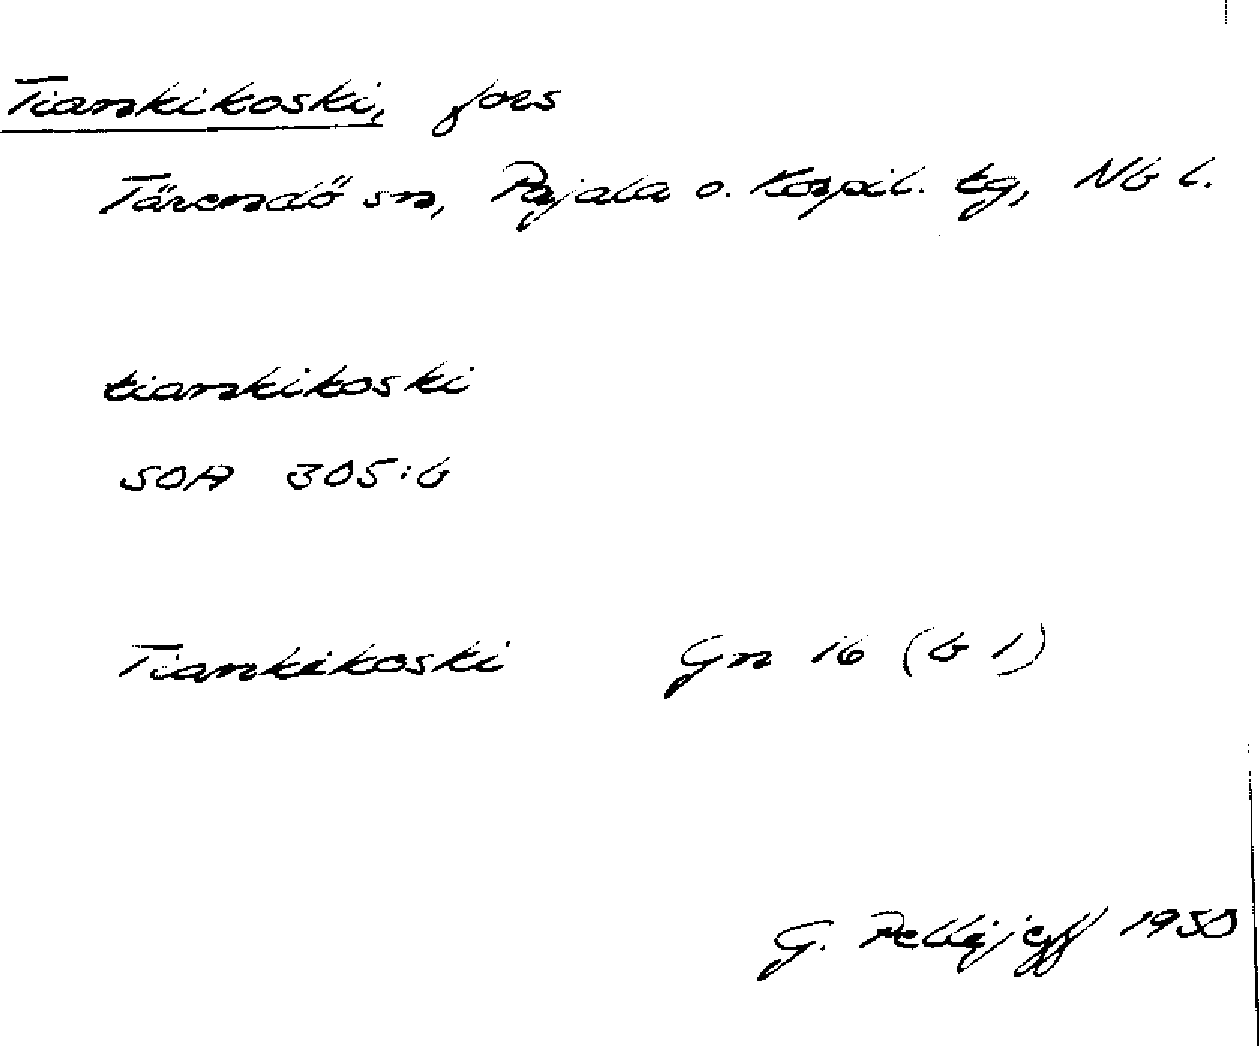 Tiankikoski, fors
Tärendö sn, Pajala o. Korpil. tg, Nb l.
tiankikoski
SOA 305:6
Tiankikoski Gn 16 (b 1)
G. Pellijeff 1950